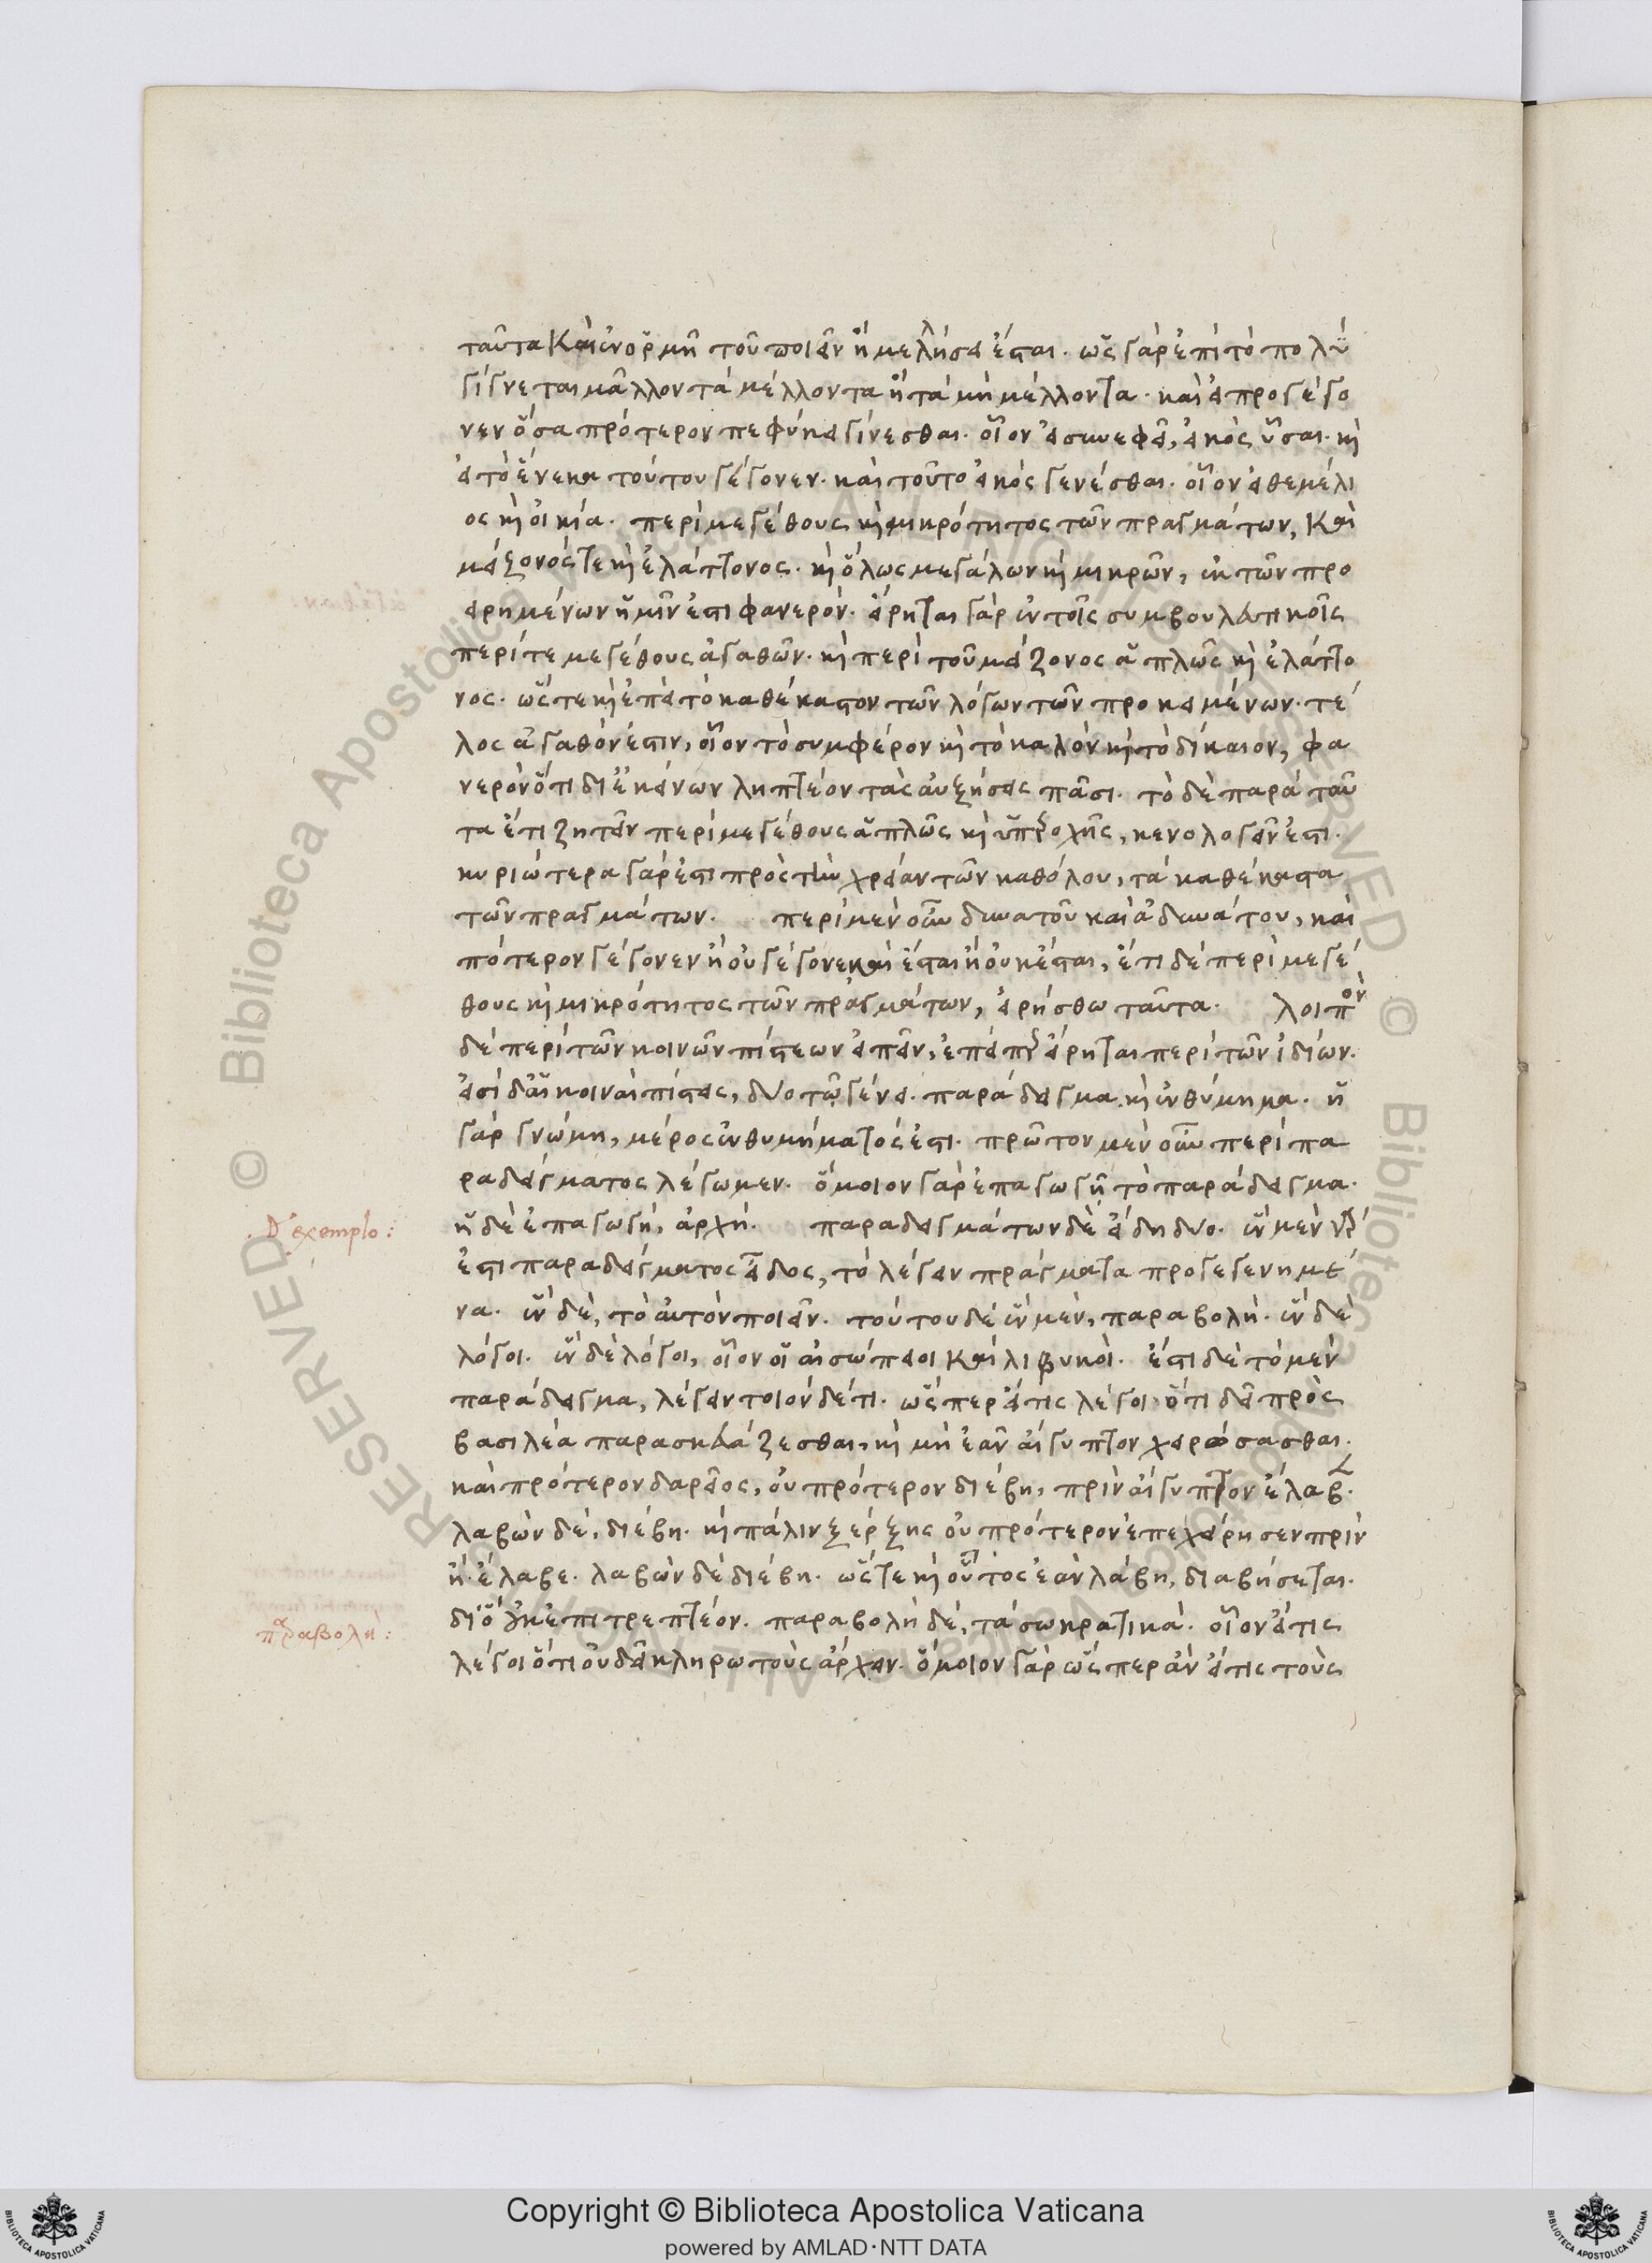 ταῦτα καὶ ἐν ὁρμῆ τοῦ ποιεῖν ἢ μελλήσει ἔσται. ὡς γὰρ ἐπὶ τὸ πολὺ
γίγνεται μᾶλλον τὰ μέλλοντα ἢ τὰ μὴ μέλλοντα. καὶ εἰ προγέγο
νεν ὅσα πρότερον πεφύκει γίνεσθαι. οἷον εἰ συνεφεῖ, εἰκὸς ὗσαι. καὶ
εἰ τὸ ἕνεκα τούτου γέγονεν. καὶ τοῦτο εἰκὸς γενέσθαι. οἷον εἰ θεμέλι
ος καὶ οἰκία. περὶ μεγέθους καὶ μικρότητος τῶν πραγμάτων, καὶ
μείζονός τε καὶ ἐλάττονος. καὶ ὅλως μεγάλων καὶ μικρῶν, ἐκ τῶν προ
ειρημένων ἡμῖν ἐστι φανερόν. εἴρηται γὰρ ἐν τοῖς συμβουλευτικοῖς
περί τε μεγέθους ἀγαθῶν. καὶ περὶ τοῦ μείζονος ἁπλῶς καὶ ἐλάττο
νος. ὥστε καὶ ἐπεὶ τὸ καθέκαστον τῶν λόγων τῶν προκειμένων. τέ
λος ἀγαθόν ἐστιν, οἷον τὸ συμφέρον καὶ τὸ καλὸν καὶ τὸ δίκαιον, φα
νερὸν ὅτι δι ἐκείνων ληπτέον τὰς αὐξήσεις πᾶσι. τὸ δὲ παρὰ ταῦ
τα ἔτι ζητεῖν περὶ μεγέθους ἁπλῶς καὶ ὑπεροχῆς, κενολογεῖν ἐστι.
κυριώτερα γάρ ἐστι πρὸς τὴν χρείαν τῶν καθόλου, τὰ καθέκαστα
τῶν πραγμάτων. περὶ μὲν οὖν δυνατοῦ καὶ ἀδυνάτου, καὶ
πότερον γέγονεν ἢ οὐ γέγονε καὶ ἔσται ἢ οὐκ ἔσται, ἔτι δὲ περὶ μεγέ
θους καὶ μικρότητος τῶν πραγμάτων, εἰρήσθω ταῦτα. λοιπὸν
δὲ περὶ τῶν κοινῶν πίστεων εἰπεῖν, ἐπείπερ εἴρηται περὶ τῶν ἰδίων.
εἰσὶ δ αἱ κοιναὶ πίστεις, δύο τῷ γένει. παράδειγμα καὶ ἐνθύμημα. ἡ
γὰρ γνώμη, μέρος ἐνθυμήματός ἐστι. πρῶτον μὲν οὖν περὶ πα
ραδείγματος λέγωμεν. ὅμοιον γὰρ ἐπαγωγῆ τὸ παράδειγμα.
ἡ δὲ ἐπαγωγή, ἀρχή. παραδειγμάτων δὲ εἴδη δύο. ἓν μὲν γάρ
ἐστι παραδείγματος εἶδος, τὸ λέγειν πράγματα προγεγενημέ
να. ἓν δὲ, τὸ αὐτὸν ποιεῖν. τούτου δὲ ἓν μὲν, παραβολή. ἓν δὲ
λόγοι. ἓν δὲ λόγοι, οἷον οἱ αἰσώπειοι καὶ λιβυκοί. ἔστι δὲ τὸ μὲν
παράδειγμα, λέγειν τοιόνδέ τι. ὥσπερ εἴ τις λέγοι ὅτι δεῖ πρὸς
βασιλέα παρασκευάζεσθαι, καὶ μὴ ἐᾶν αἴγυπτον χειρώσασθαι.
καὶ πρότερον δαρεῖος, οὐ πρότερον διέβη, πρὶν αἴγυπτον ἔλαβε.
λαβὼν δὲ, διέβη. καὶ πάλιν ξέρξης οὐ πρότερον ἐπεχείρησεν πρὶν
ἢ ἔλαβε. λαβὼν δὲ διέβη. ὥστε καὶ οὗτος ἐὰν λάβη, διαβήσεται.
διὸ οὐκ ἐπιτρεπτέον. παραβολὴ δὲ, τὰ σωκρατικά. οἷον εἴ τις
λέγοι ὅτι οὐ δεῖ κληρωτοὺς ἄρχειν. ὅμοιον γὰρ ὥσπερ ἂν εἴ τις τοὺς
D' exemplo:
παραβολή:
© Biblioteca Apostolica Vaticana ALL RIGHTS RESERVED © Biblioteca Apostolica Vaticana ALL RIGHTS RESERVED
Copyright © Biblioteca Apostolica Vaticana
powered by AMLAD·NTT DATA
BIBLIOTECA APOSTOLICA VATICANA
BIBLIOTECA APOSTOLICA VATICANA